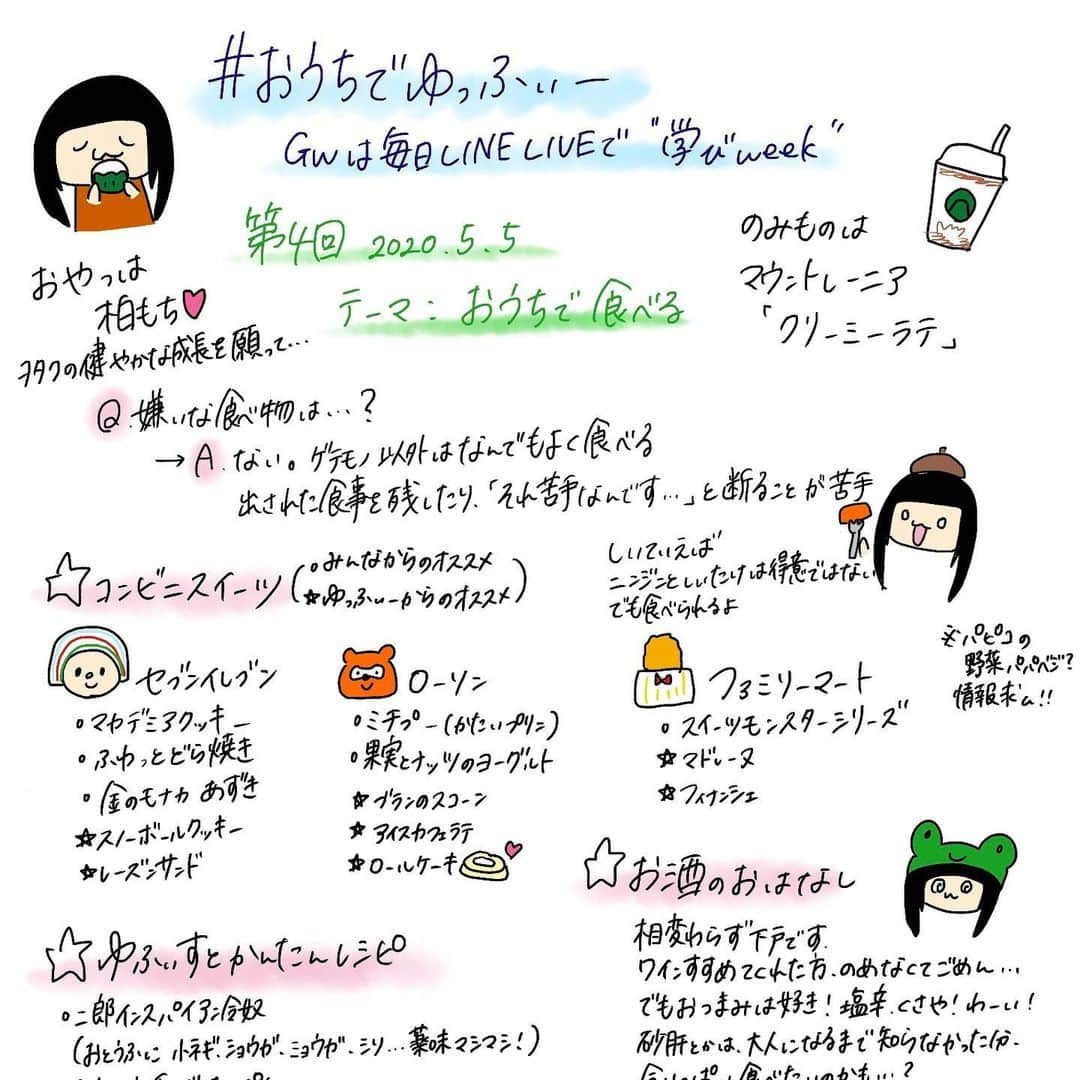 #おうちでゆっふぃー
GWは毎日LINE LIVEで"学びweek"
第4回 2020.5.5
テーマ:おうちで食べる
おやつは
柏もち
ヲタクの健やかな成長を願って…
のみものは
マウントレーニア
「クリーミーラテ」
Q.嫌いな食べ物は…?
→A.ない。ゲテモノ以外はなんでもよく食べる
出された食事を残したり、「それ苦手なんです…」と断ることが苦手
しいていえば
ニンジンとしいたけは得意ではない
でも食べられるよ
※パピコの
野菜パパベジ?
情報求ム!!
☆コンビニスイーツ(○みんなからのオススメ
★ゆっふぃーからのオススメ)
セブンイレブン
○マカデミアクッキー
○ふわっとどら焼き
○金のモナカ あずき
★スノーボールクッキー
★レーズンサンド
ローソン
○ミチプー(かたいプリン)
○果実とナッツのヨーグルト
★ブランのスコーン
★アイスカフェラテ
★ロールケーキ
ファミリーマート
○スイーツモンスターシリーズ
★マドレーヌ
★フィナンシェ
☆お酒のおはなし
相変わらず下戸です.
ワインすすめてくれた方、のめなくてごめん…
でもおつまみは好き!塩辛、くさや!わーい!
砂肝とかは、大人になるまで知らなかった分、
今いっぱい食べたいのかも…?
☆ゆふぃすとかんたんレシピ
○二郎インスパイア冷奴
(おとうふに 小ネギ、ショウガ、ミョウガ、シソ…薬味マシマシ!)